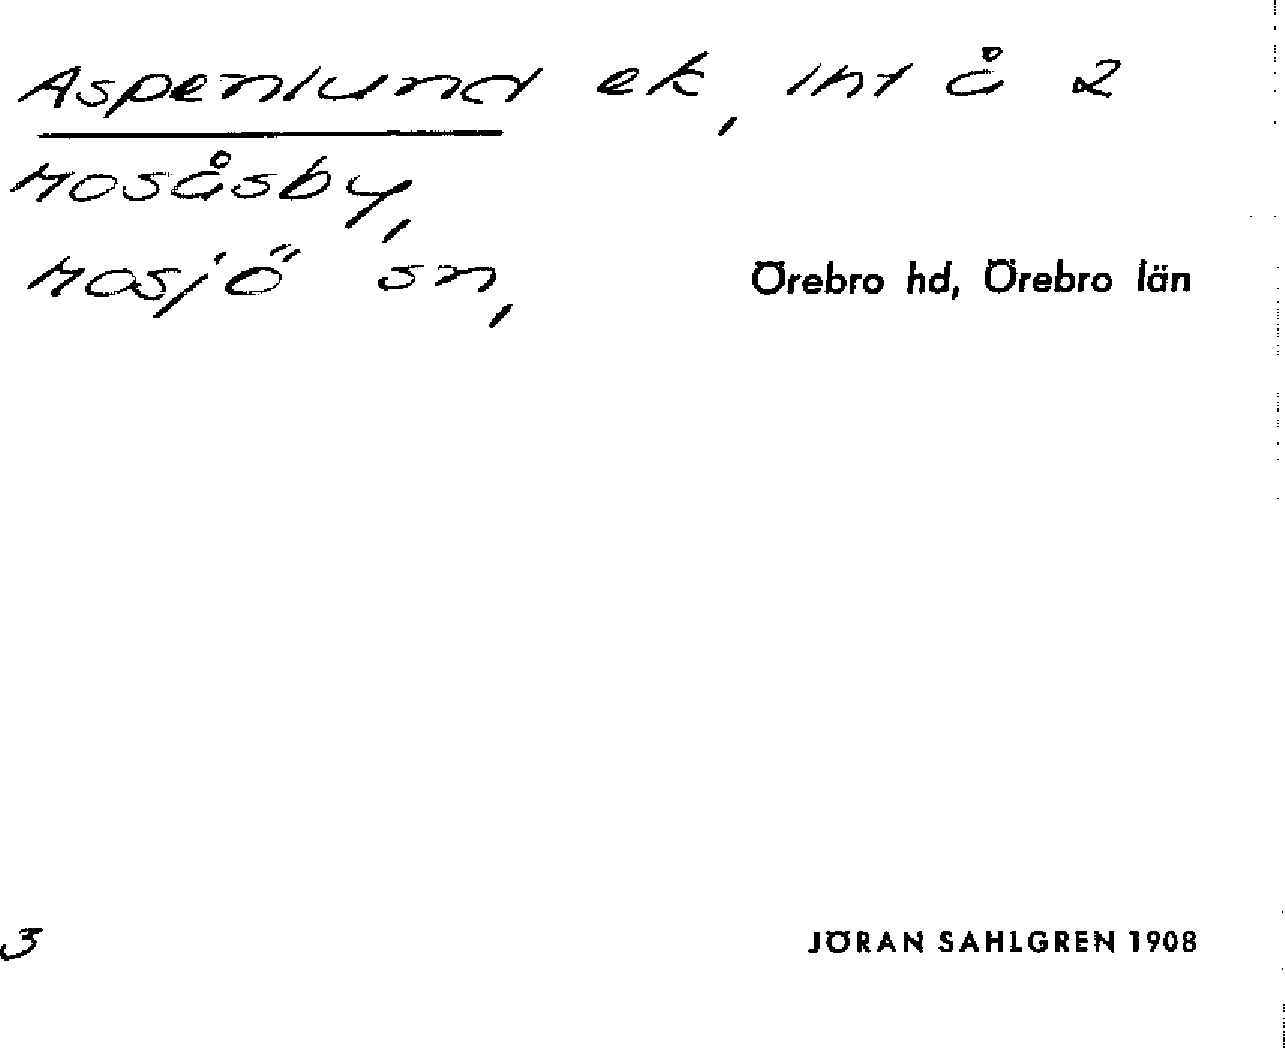 Aspenlund ek, int å 2
Mosåsby,
Mosjö sn, Örebro hd, Örebro län
3 JÖRAN SAHLGREN 1908